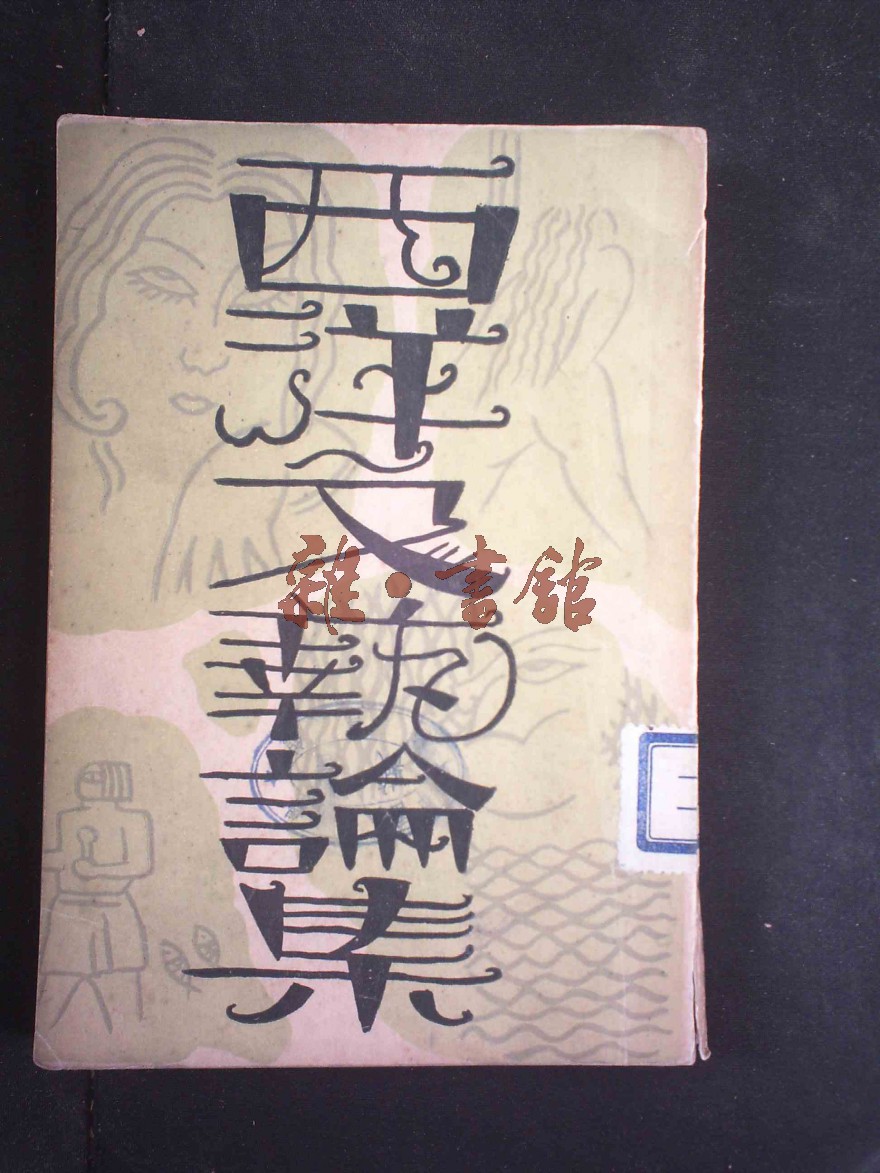 西洋文藝論集
雜·書館